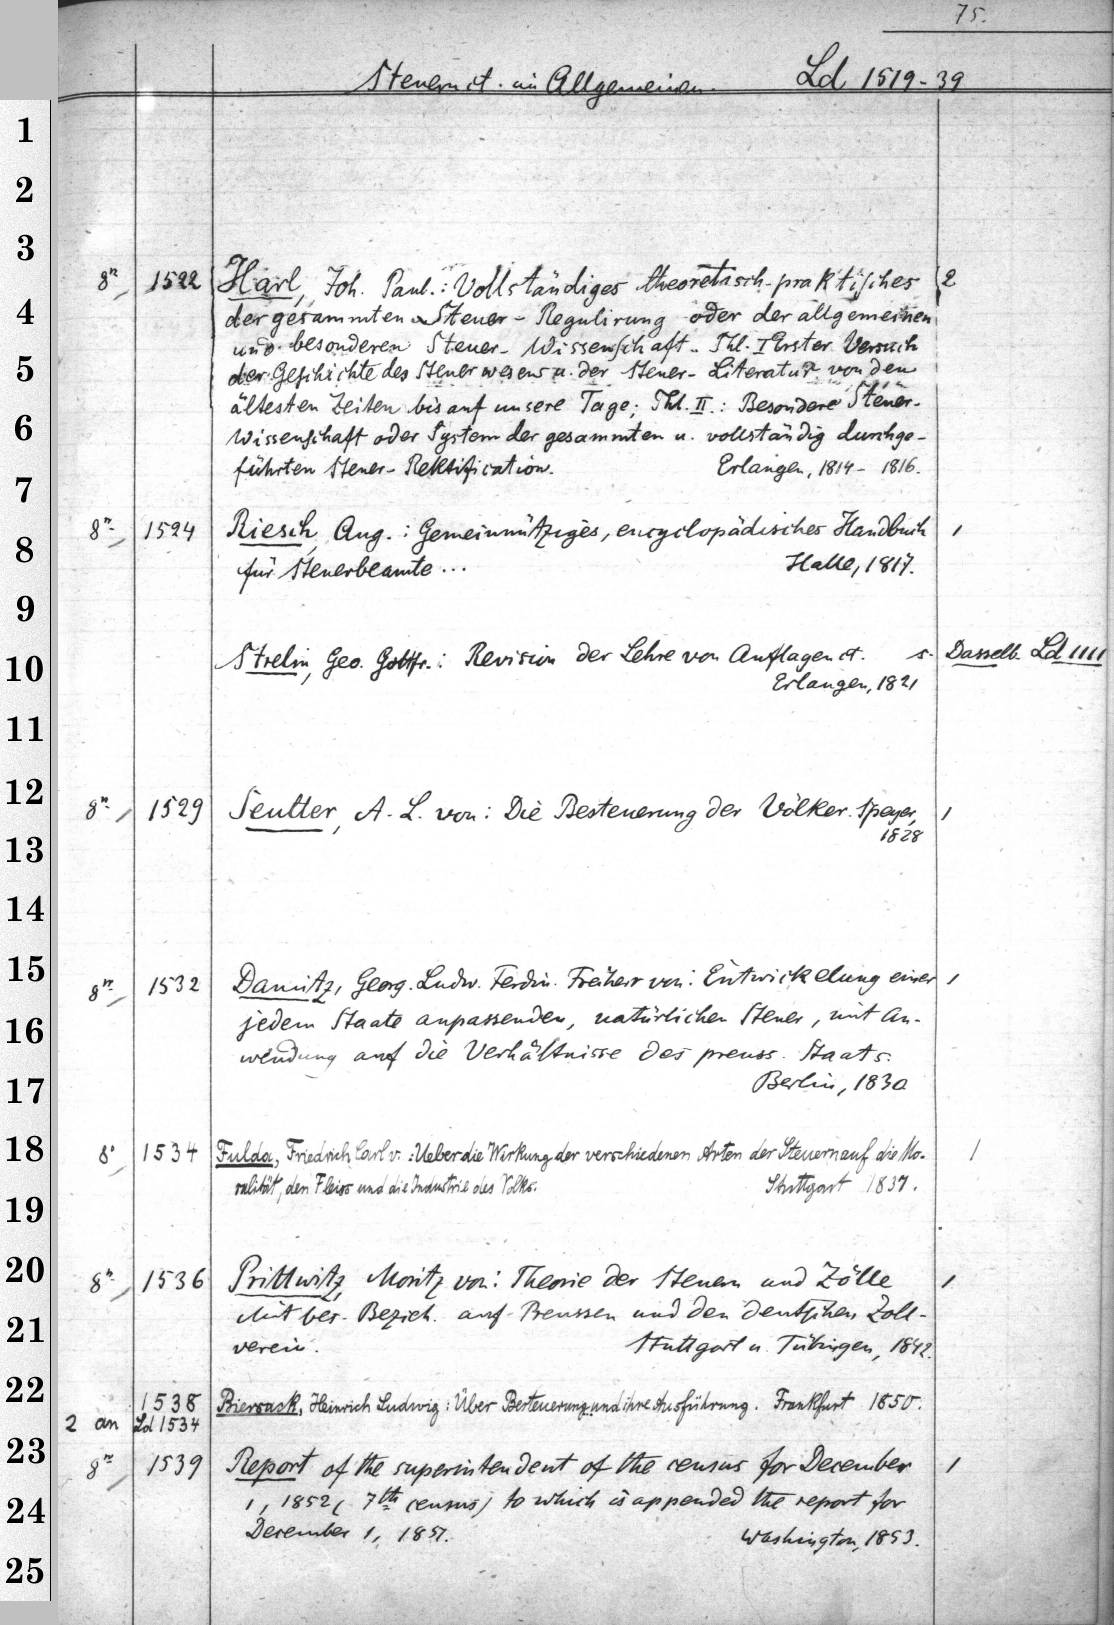 75.
Steuern ct. im Allgemeinen. Ld 1519-39
1
2
3
8º 1522 Harl, Joh. Paul.: Vollständiges theoretisch-praktisches 2
4
der gesammten Steuer-Regulirung oder der allgemeinen
und besonderen Steuer-Wissenschaft. Thl. I Erster Versuch
5
der Geschichte des Steuerwesens u. der Steuer-Literatur von den
ältesten Zeiten bis auf unsere Tage; Thl. II.: Besondere Steuer-
6
Wissenschaft oder System der gesammten u. vollständig durchge-
führten Steuer-Rektification. Erlangen, 1814-1816.
7
8º 1524 Riesch, Aug.: Gemeinnütziges, encyclopädisches Handbuch 1
8
für Steuerbeamte... Halle, 1817.
9
10
Strelin, Geo. Gottfr.: Revision der Lehre von Auflagen ct. s. Dasselb. Ld 1111
Erlangen, 1821
11
12
8º 1529 Seutter, A. L. von: Die Besteuerung der Völker. Speyer, 1
1828
13
14
15
8º 1532 Damitz, Georg. Ludw. Ferdin. Freiherr von: Entwickelung einer 1
16
jedem Staate anpassenden, natürlichen Steuer, mit An-
wendung auf die Verhältnisse des preuss. Staats.
17
Berlin, 1830
18
8º 1534 Fulda, Friedrich Carl v.: Ueber die Wirkung der verschiedenen Arten der Steuern auf die Mo- 1
ralität, den Fleiss und die Industrie des Volks. Stuttgart 1837.
19
20
8º 1536 Prittwitz, Moritz von: Theorie der Steuern und Zölle 1
Mit bes. Bezieh. auf Preussen und den deutschen Zoll-
21
verein. Stuttgart u. Tübingen, 1842.
22
1538 Biersack, Heinrich Ludwig: Über Besteuerung und ihre Ausführung. Frankfurt 1850.
2 an Ld 1534
23
8º 1539 Report of the superintendent of the census for December 1
24
1, 1852 (7th census) to which is appended the report for
December 1, 1851. Washington, 1853.
25